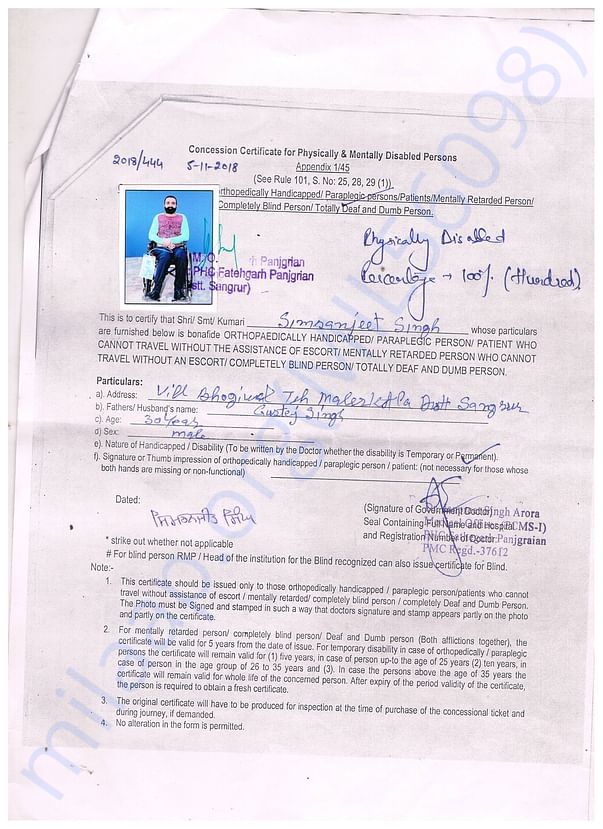 Concession Certificate for Physically & Mentally Disabled Persons
2018/444 5-11-2018 Appendix 1/45
(See Rule 101, S. No: 25, 28, 29 (1)).
rthopedically Handicapped/ Paraplegic persons/Patients/Mentally Retarded Person/
Completely Blind Person/ Totally Deaf and Dumb Person.
Physically Disabled
Percentage → 100% (Hundred)
M. O.
h Panjgrian
PHC Fatehgarh Panjgrian
stt. Sangrur)
This is to certify that Shri/ Smt/ Kumari Simranjeet Singh whose particulars
are furnished below is bonafide ORTHOPAEDICALLY HANDICAPPED/ PARAPLEGIC PERSON/ PATIENT WHO
CANNOT TRAVEL WITHOUT THE ASSISTANCE OF ESCORT/ MENTALLY RETARDED PERSON WHO CANNOT
TRAVEL WITHOUT AN ESCORT/ COMPLETELY BLIND PERSON/ TOTALLY DEAF AND DUMB PERSON.
Particulars:
a). Address: Vill Bhogiwal Teh Malerkotla Distt Sangrur
b). Fathers/ Husband's name: Gurtej Singh
c). Age: 30 Years
d) Sex: male
e). Nature of Handicapped / Disability (To be written by the Doctor whether the disability is Temporary or Permanent).
f). Signature or Thumb impression of orthopedically handicapped / paraplegic person / patient: (not necessary for those whose
both hands are missing or non-functional)
Dated:
ਸਿਮਰਨਜੀਤ ਸਿੰਘ
(Signature of Government Doctor)
Seal Containing Full Name and Hospital
and Registration Number of Doctor.
Singh Arora
(PCMS-I)
Panjgraian
PMC Regd.-37612
* strike out whether not applicable
# For blind person RMP / Head of the institution for the Blind recognized can also issue certificate for Blind.
Note:-
1. This certificate should be issued only to those orthopedically handicapped / paraplegic person/patients who cannot
travel without assistance of escort / mentally retarded/ completely blind person / completely Deaf and Dumb Person.
The Photo must be Signed and stamped in such a way that doctors signature and stamp appears partly on the photo
and partly on the certificate.
2. For mentally retarded person/ completely blind person/ Deaf and Dumb person (Both afflictions together), the
certificate will be valid for 5 years from the date of issue. For temporary disability in case of orthopedically / paraplegic
persons the certificate will remain valid for (1) five years, in case of person up-to the age of 25 years (2) ten years, in
case of person in the age group of 26 to 35 years and (3). In case the persons above the age of 35 years the
certificate will remain valid for whole life of the concerned person. After expiry of the period validity of the certificate,
the person is required to obtain a fresh certificate.
3. The original certificate will have to be produced for inspection at the time of purchase of the concessional ticket and
during journey, if demanded.
4. No alteration in the form is permitted.